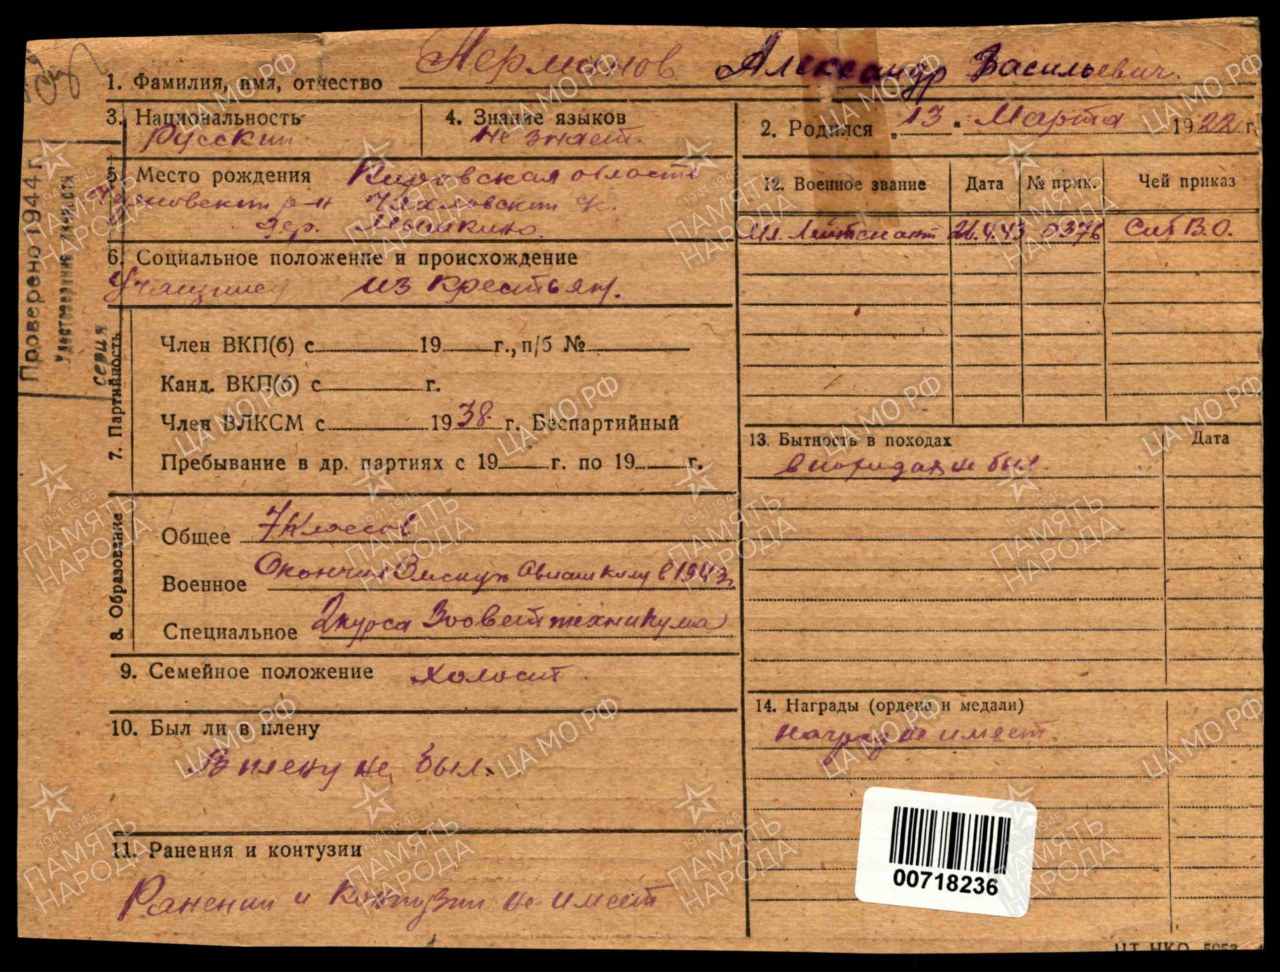 1. Фамилия, имя, отчество Александр Васильевич
3. Национальность Русский
4. Знание языков не знает.
2. Родился „13" Марта 1922 г.
5. Место рождения Кировская область
р-н
дер. Мышкино.
6. Социальное положение и происхождение
Учащийся из крестьян.
7. Партийность
Член ВКП(б) с 19 г., п/б №
Канд. ВКП(б) с г.
Член ВЛКСМ с 1938 г. Беспартийный
Пребывание в др. партиях с 19 г. по 19 г.
8. Образование
Общее 7 классов
Военное Окончил Авиашколу в 1943 г.
Специальное 2 курса Зооветтехникума
9. Семейное положение холост.
10. Был ли в плену
В плену не был.
11. Ранения и контузии
Ранений и контузий не имеет
12. Военное звание Дата № прик. Чей приказ
Мл. Лейтенант 26.4.43 0376 Сиб В.О.
13. Бытность в походах Дата
в походах не был.
14. Награды (ордена и медали)
наград не имеет.
00718236
Проверено 1944 г.
Удостоверение личности
серия
ЦА МО РФ
1941-1945
ПАМЯТЬ
НАРОДА